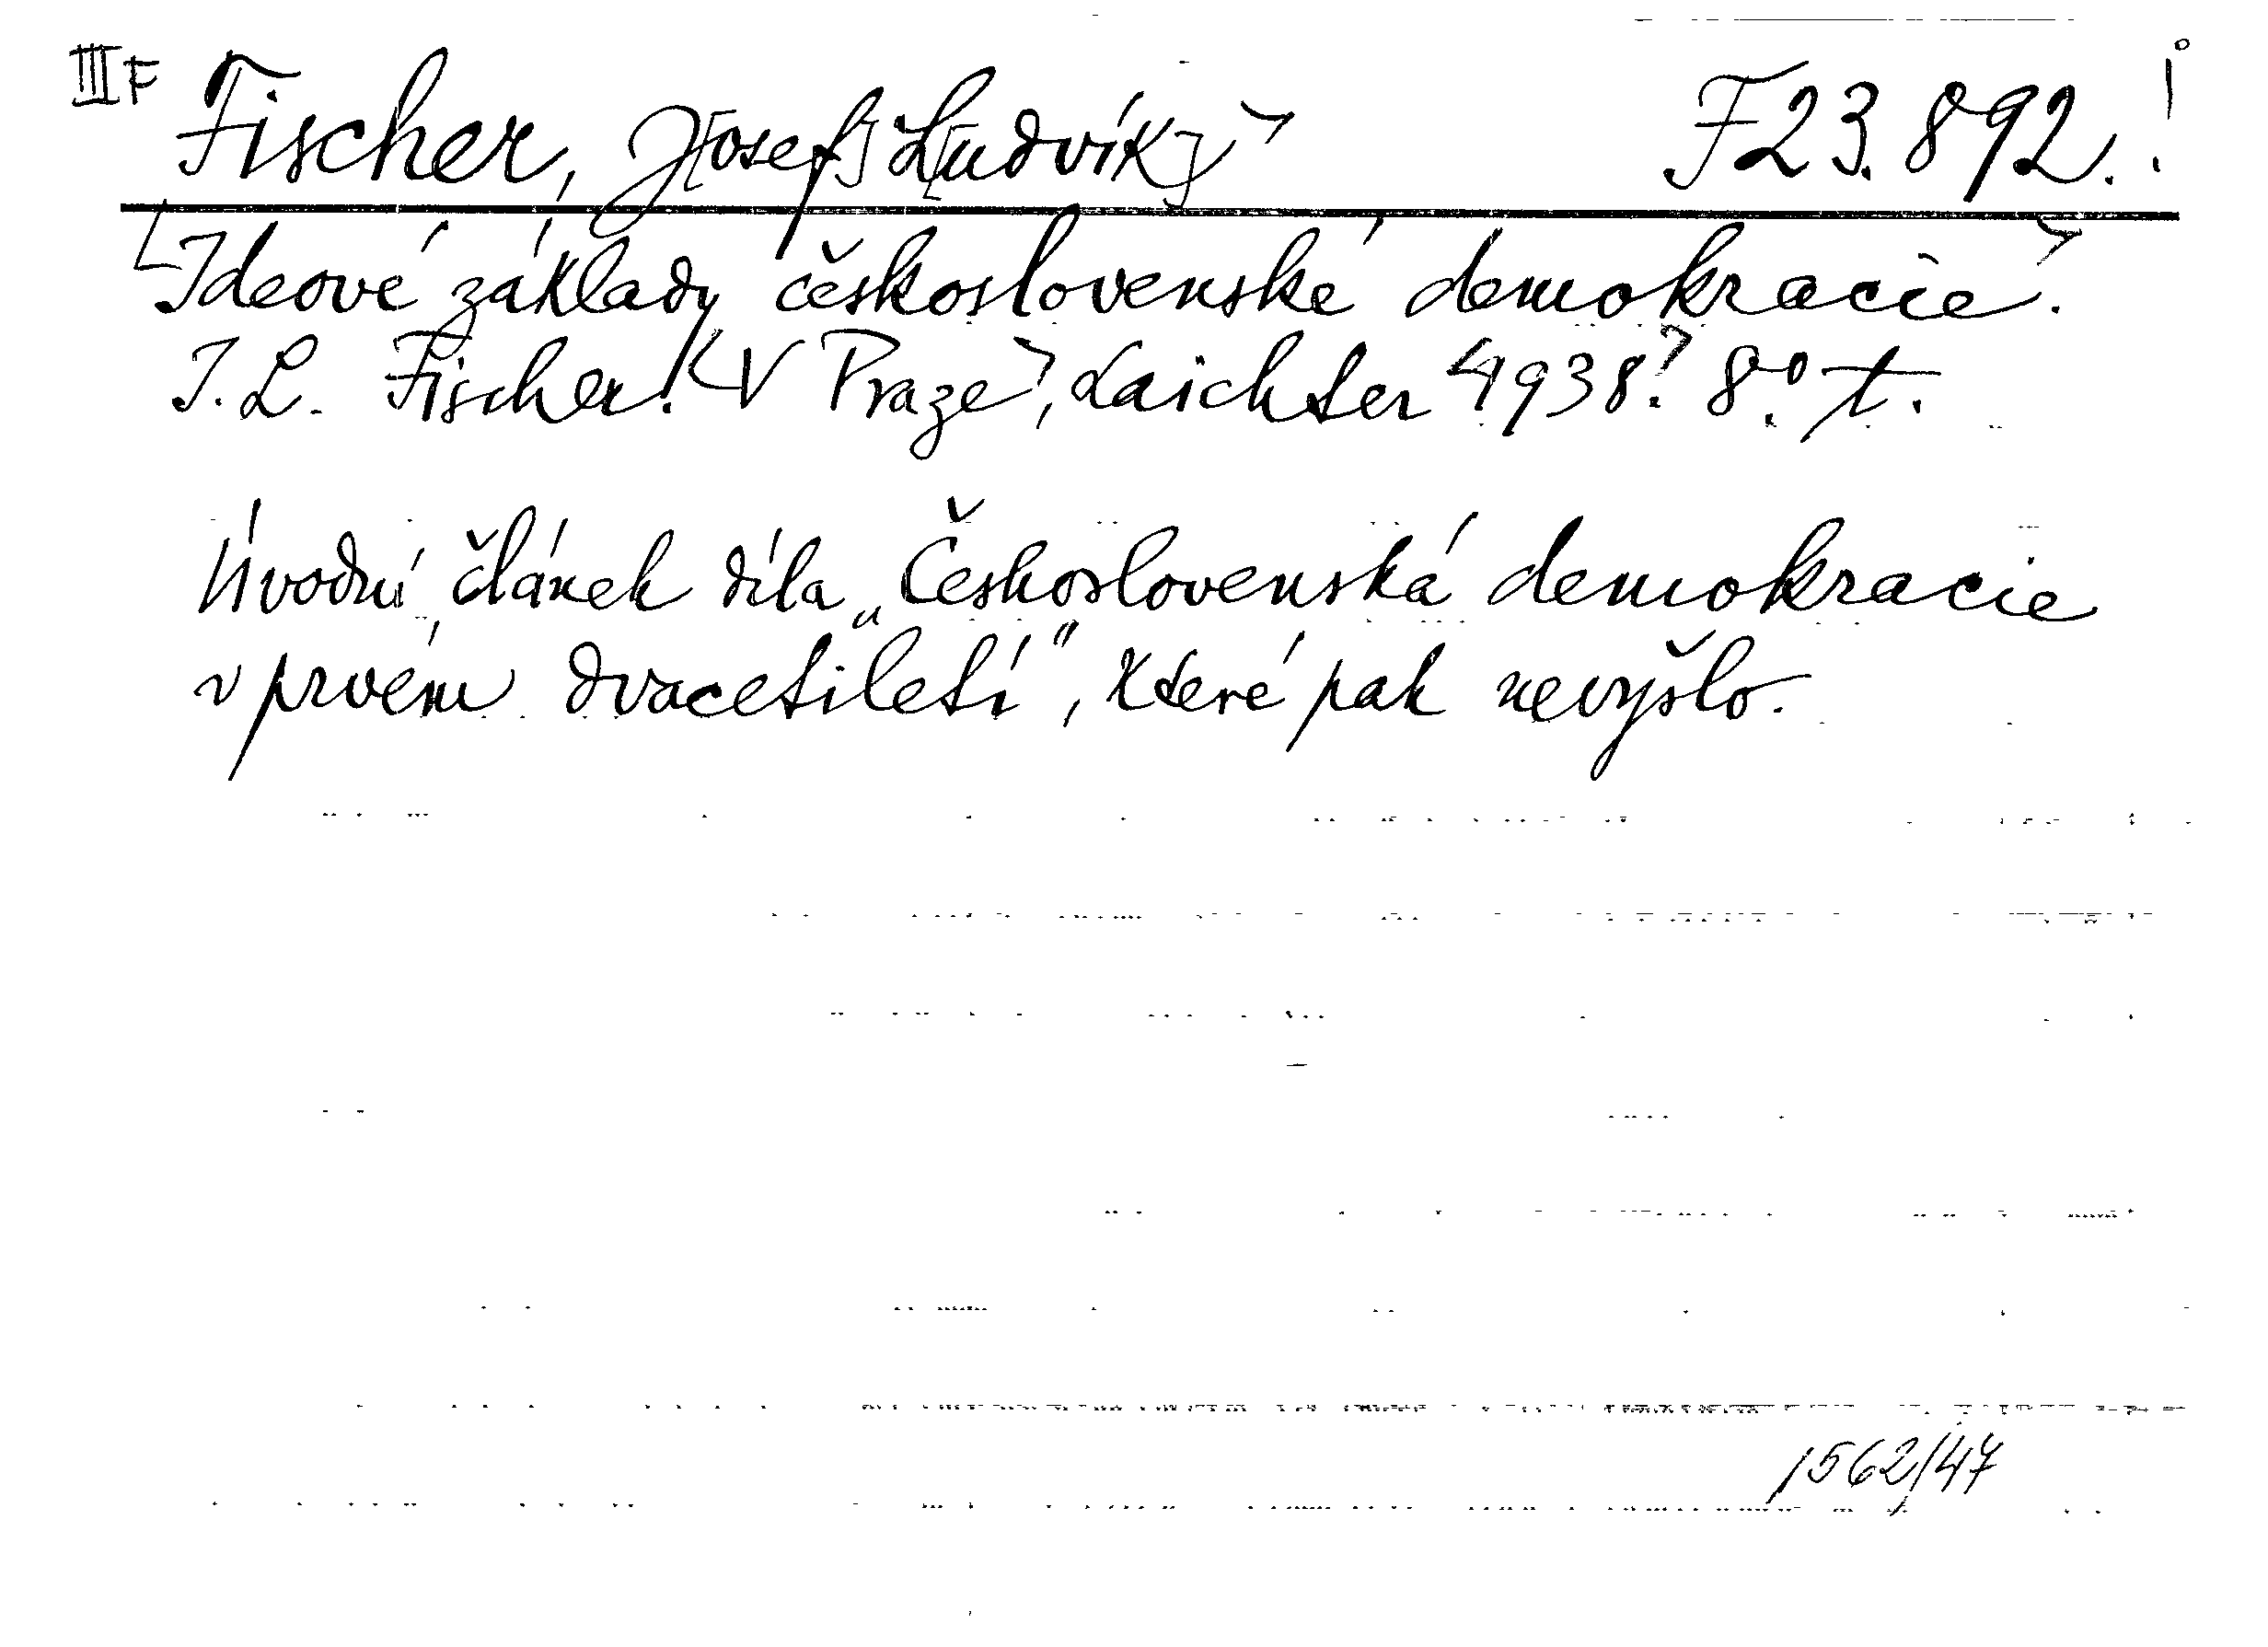 III F Fischer, J[osef] L[udvík] F 23.892.
Ideové základy československé demokracie.
J. L. Fischer. V Praze, Laichter 1938. 8°. t.
Úvodní článek díla „Československá demokracie
v prvém dvacetiletí", které pak nevyšlo.
1562/47